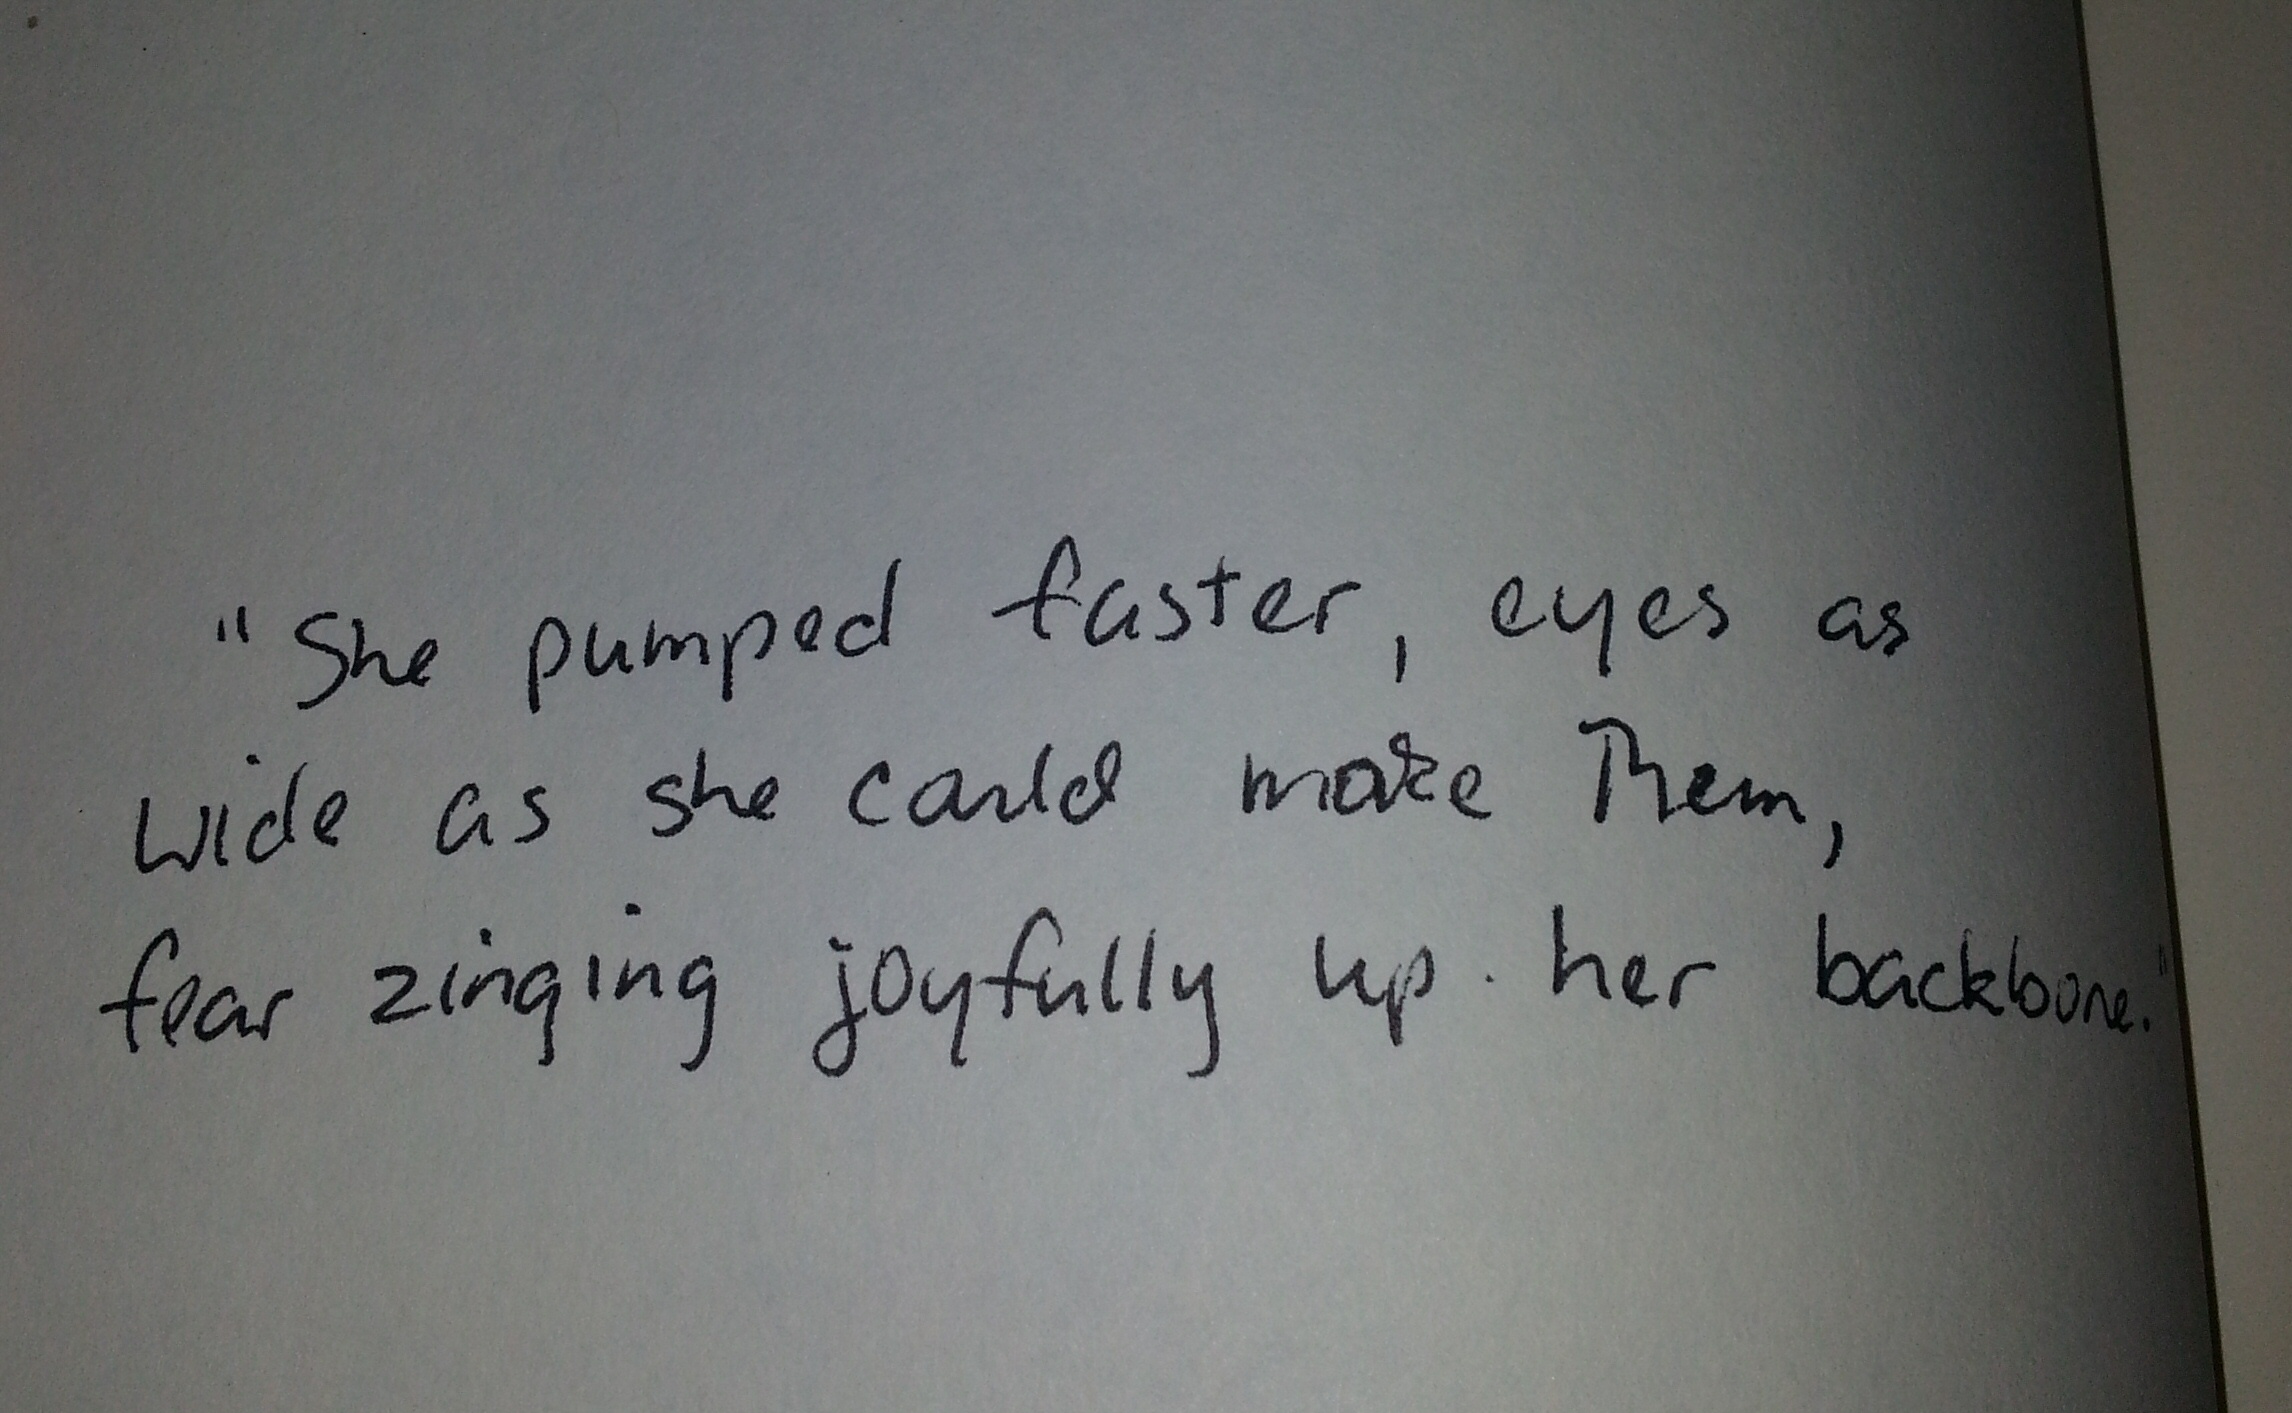 "She pumped faster, eyes as
wide as she could make Them,
fear zinging joyfully up her backbone."